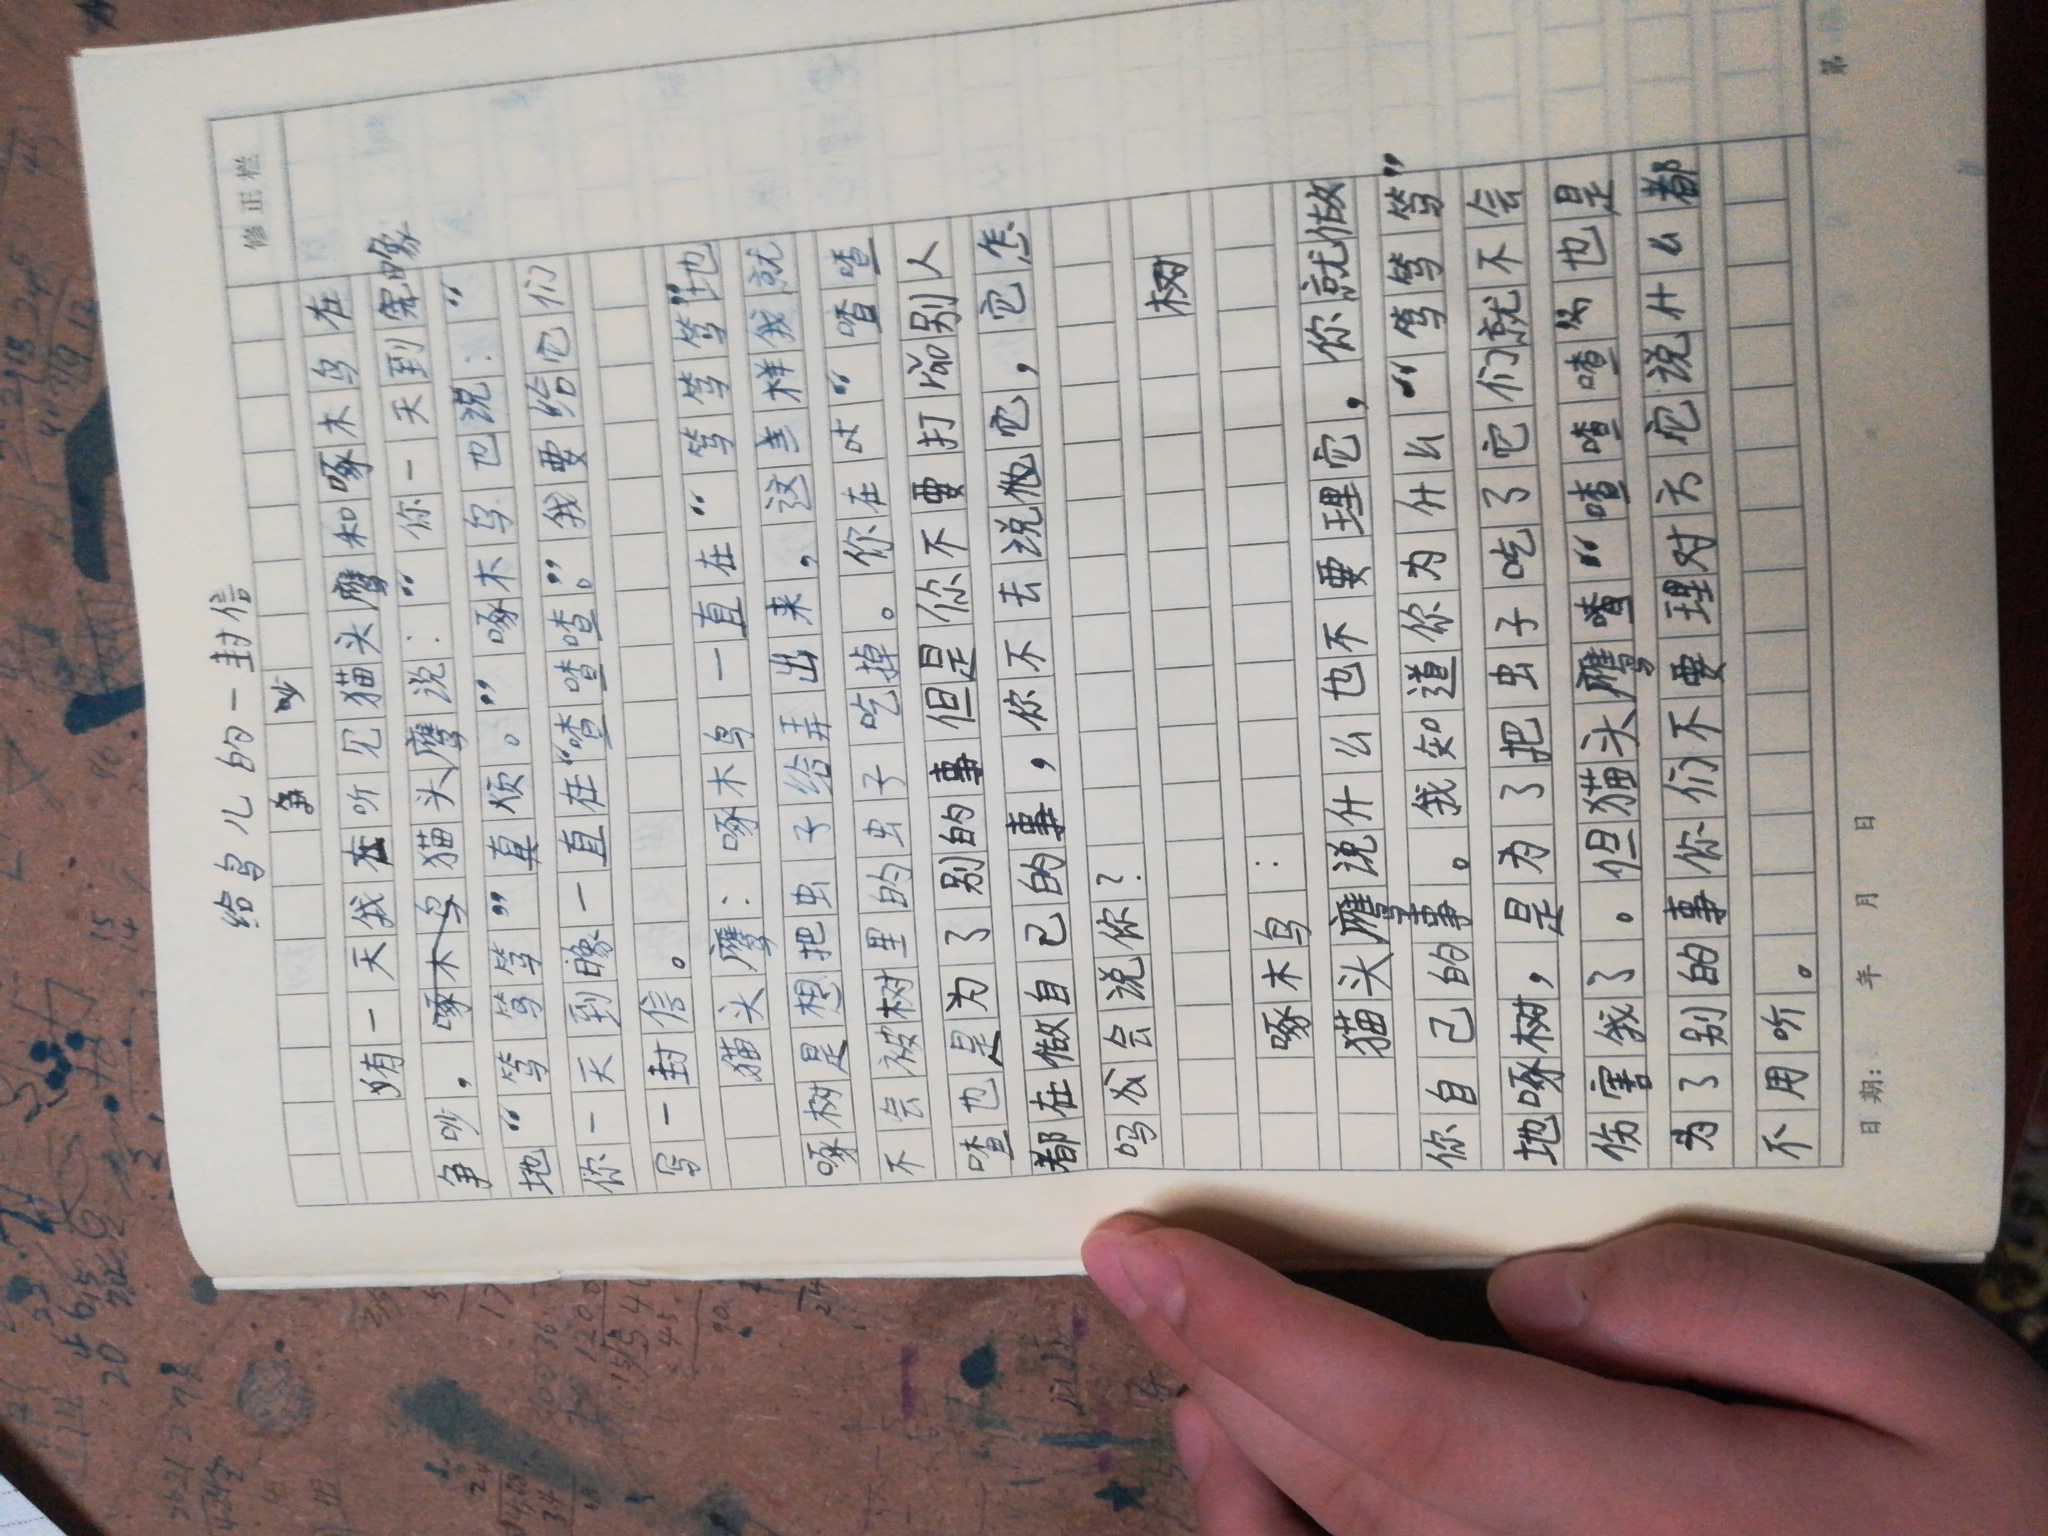 修正栏
给鸟儿的一封信
争 吵
有一天我在听见猫头鹰和啄木鸟在
争吵，啄木鸟猫头鹰说：“你一天到
地“笃笃笃”真烦。”啄木鸟也说：“
你一天到晚一直在“喳喳喳。”我要给它们
写一封信。
猫头鹰：啄木鸟一直在“笃笃笃笃”地
啄树是想把虫子给弄出来，这样我就
不会被树里的虫子吃掉。你在吐“喳喳
喳也是为了别的事但是你不要打 别人
都在做自己的事，你不去说他它，它怎
吗 会说你？
树
啄木鸟：
猫头鹰说什么也不要理它，你就做
你自己的事。我知道你为什么“笃笃笃”
地啄树，是为了把虫子吃了它们就不会
伤害我了。但猫头鹰喳“喳喳喳”也是
为了别的事你们不要理对方它说什么都
不用听。
日期： 年 月 日
第